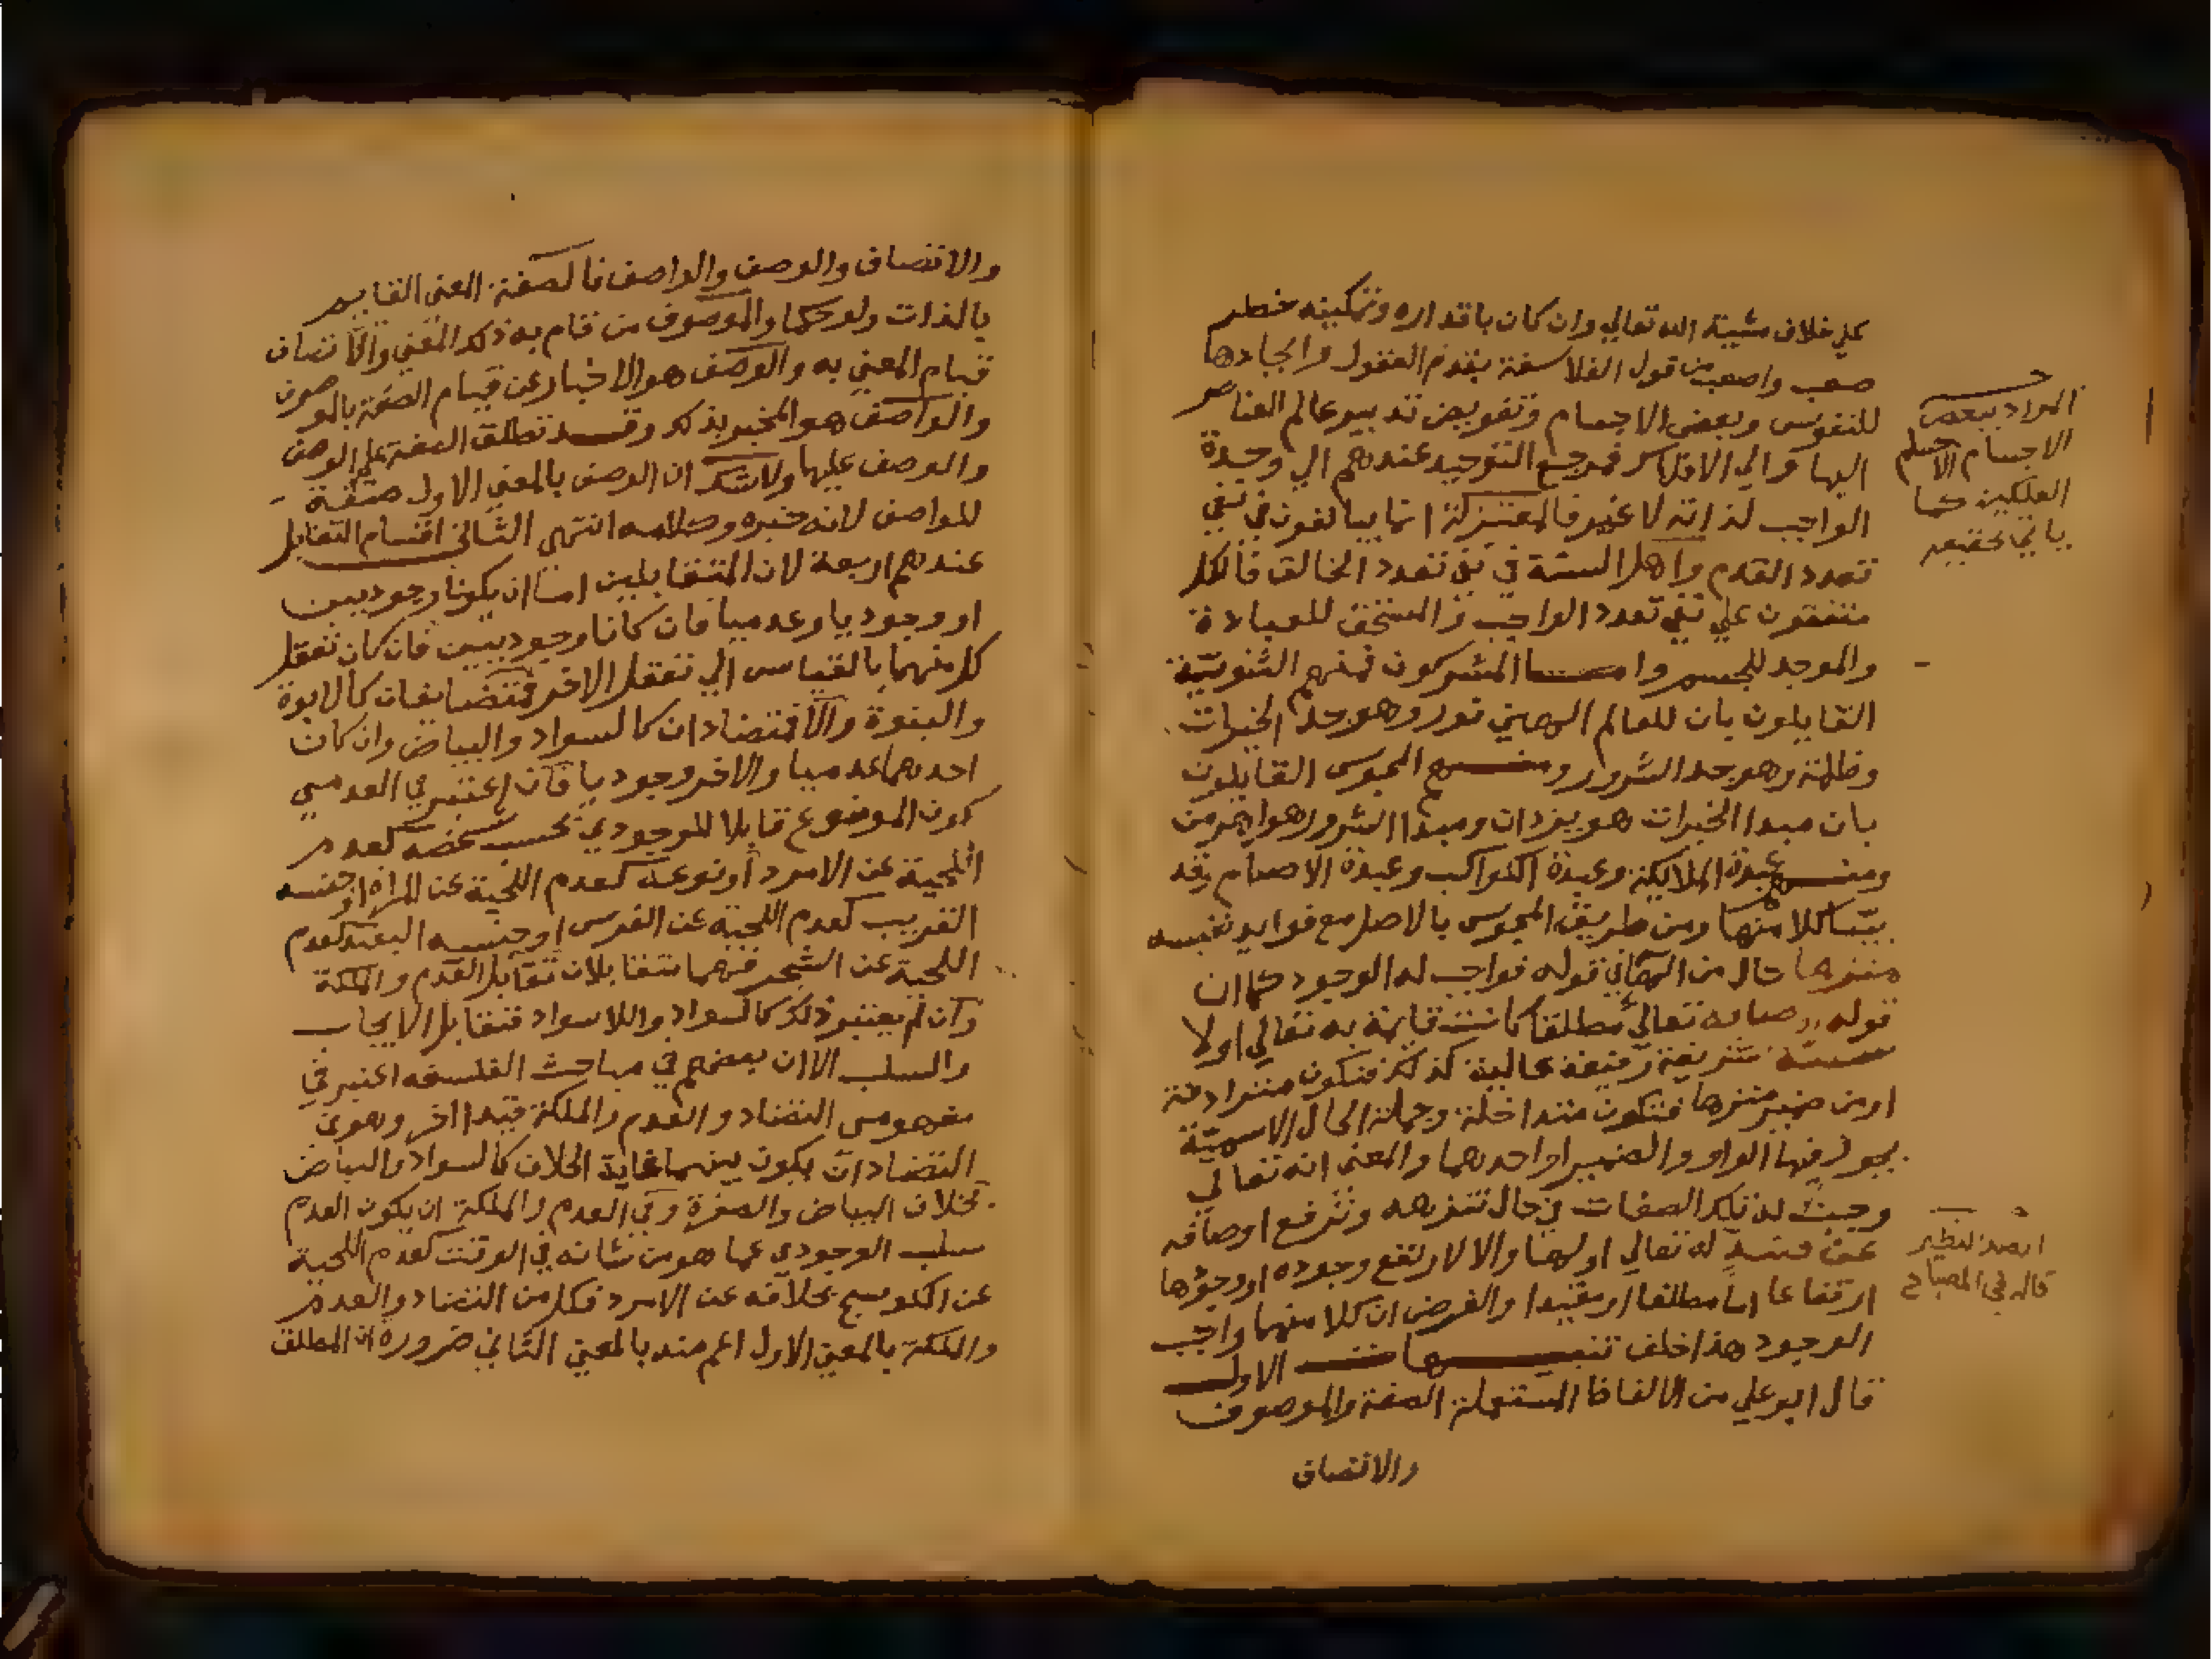 علي خلاف مشيية الله تعالي وان كان باقداره وتمكينه خطر
صعب واصعب من قول الفلاسفة بقدم العقول وايجادها
للنفوس وبعض الاجسام وتفويض تدبير عالم العناصر
اليها والي الافلاك فمرجع التوحيد عندهم الي وحدة
الواجب لذاته لا غير فالمعتزلة انما يبالغون في نفي
تعدد القدم واهل السنة في نفي تعدد الخالق فالكل
متفقون علي نفي تعدد الواجب والمستحق للعبادة
والموجد للجسم واما المشركون فمنهم الثنوية
القايلون بان للعالم الهين نور وهو مبدا الخيرات
وظلمة وهو مبدا الشرور ومنهم المجوس القايلون
بان مبدا الخيرات هو يزدان ومبدا الشرور هو اهرمن
ومنهم عبدة الملايكة وعبدة الكواكب وعبدة الاصنام وقد
بينا كلا منها ومن طريق المجوس بالاصل مع فوايد نفيسه
منزها حال من الها في قوله فواجب له الوجود كما ان
قوله اوصافه تعالي مطلقا كانت قايمة به تعالي اولا
سنية شريفة رفيعة عالية كذلك فتكون مترادفة
او من ضمير منزها فتكون متداخلة وجملة الحال الاسمية
يجوز فيها الواو والضمير او احدهما والمعني انه تعالي
وجبت له تلك الصفات في حال تنزهه وترفع اوصافه
عن ضد له تعالي او لها والا لارتفع وجوده او وجودها
ارتفاعا اما مطلقا او مقيدا والفرض ان كلا منهما واجب
الوجود هذا خلف تنبيهات الاول
قال ابو علي من الالفاظ المستعملة الصفة والموصوف
والاتصاف
المراد ببعض
الاجسام الاجسام
الفلكيين كما
ياتي تحقيقه
الضد النظير
قاله في المصباح
والاتصاف والوصف والواصف فالصفة المعني القايم
بالذات ولو حكما والموصوف من قام به ذلك المعني والاتصاف
قيام المعني به والوصف هو الاخبار عن قيام الصفة بالموصوف
والواصف هو المخبر بذلك وقد تطلق الصفة علي الوصف
والوصف عليها ولا شك ان الوصف بالمعني الاول صفة
للواصف لانه خبره وكلامه انتهي الثاني اقسام التقابل
عندهم اربعة لان المتقابلين اما ان يكونا وجوديين
او وجوديا وعدميا فان كانا وجوديين فان كان تعقل
كل منهما بالقياس الي تعقل الاخر فمتضايفان كالابوة
والبنوة والا فمتضادان كالسواد والبياض وان كان
احدهما عدميا والاخر وجوديا فان اعتبر في العدمي
كون الموضوع قابلا للوجودي بحسب شخصه كعدم
اللحية عن الامرد او نوعه كعدم اللحية عن المراة او جنسه
القريب كعدم اللحية عن الفرس او جنسه البعيد كعدم
اللحية عن الشجر فهما متقابلان تقابل العدم والملكة
وان لم يعتبر ذلك كالسواد واللاسواد فتقابل الايجاب
والسلب الا ان بعضهم في مباحث الفلسفه اعتبر في
مفهومي التضاد والعدم والملكة قيدا اخر وهو في
التضاد ان يكون بينهما غاية الخلاف كالسواد والبياض
بخلاف البياض والصفرة وفي العدم والملكة ان يكون العدم
سلب الوجودي عما هو من شانه في الوقت كعدم اللحية
عن الكوسج بخلافه عن الامرد فكل من التضاد والعدم
والملكة بالمعني الاول اعم منه بالمعني الثاني ضرورة ان المطلق